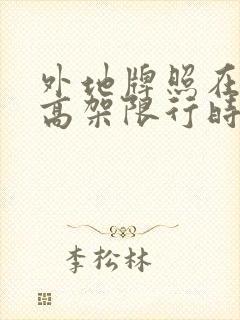 外地牌照在
高架限行时
李松林